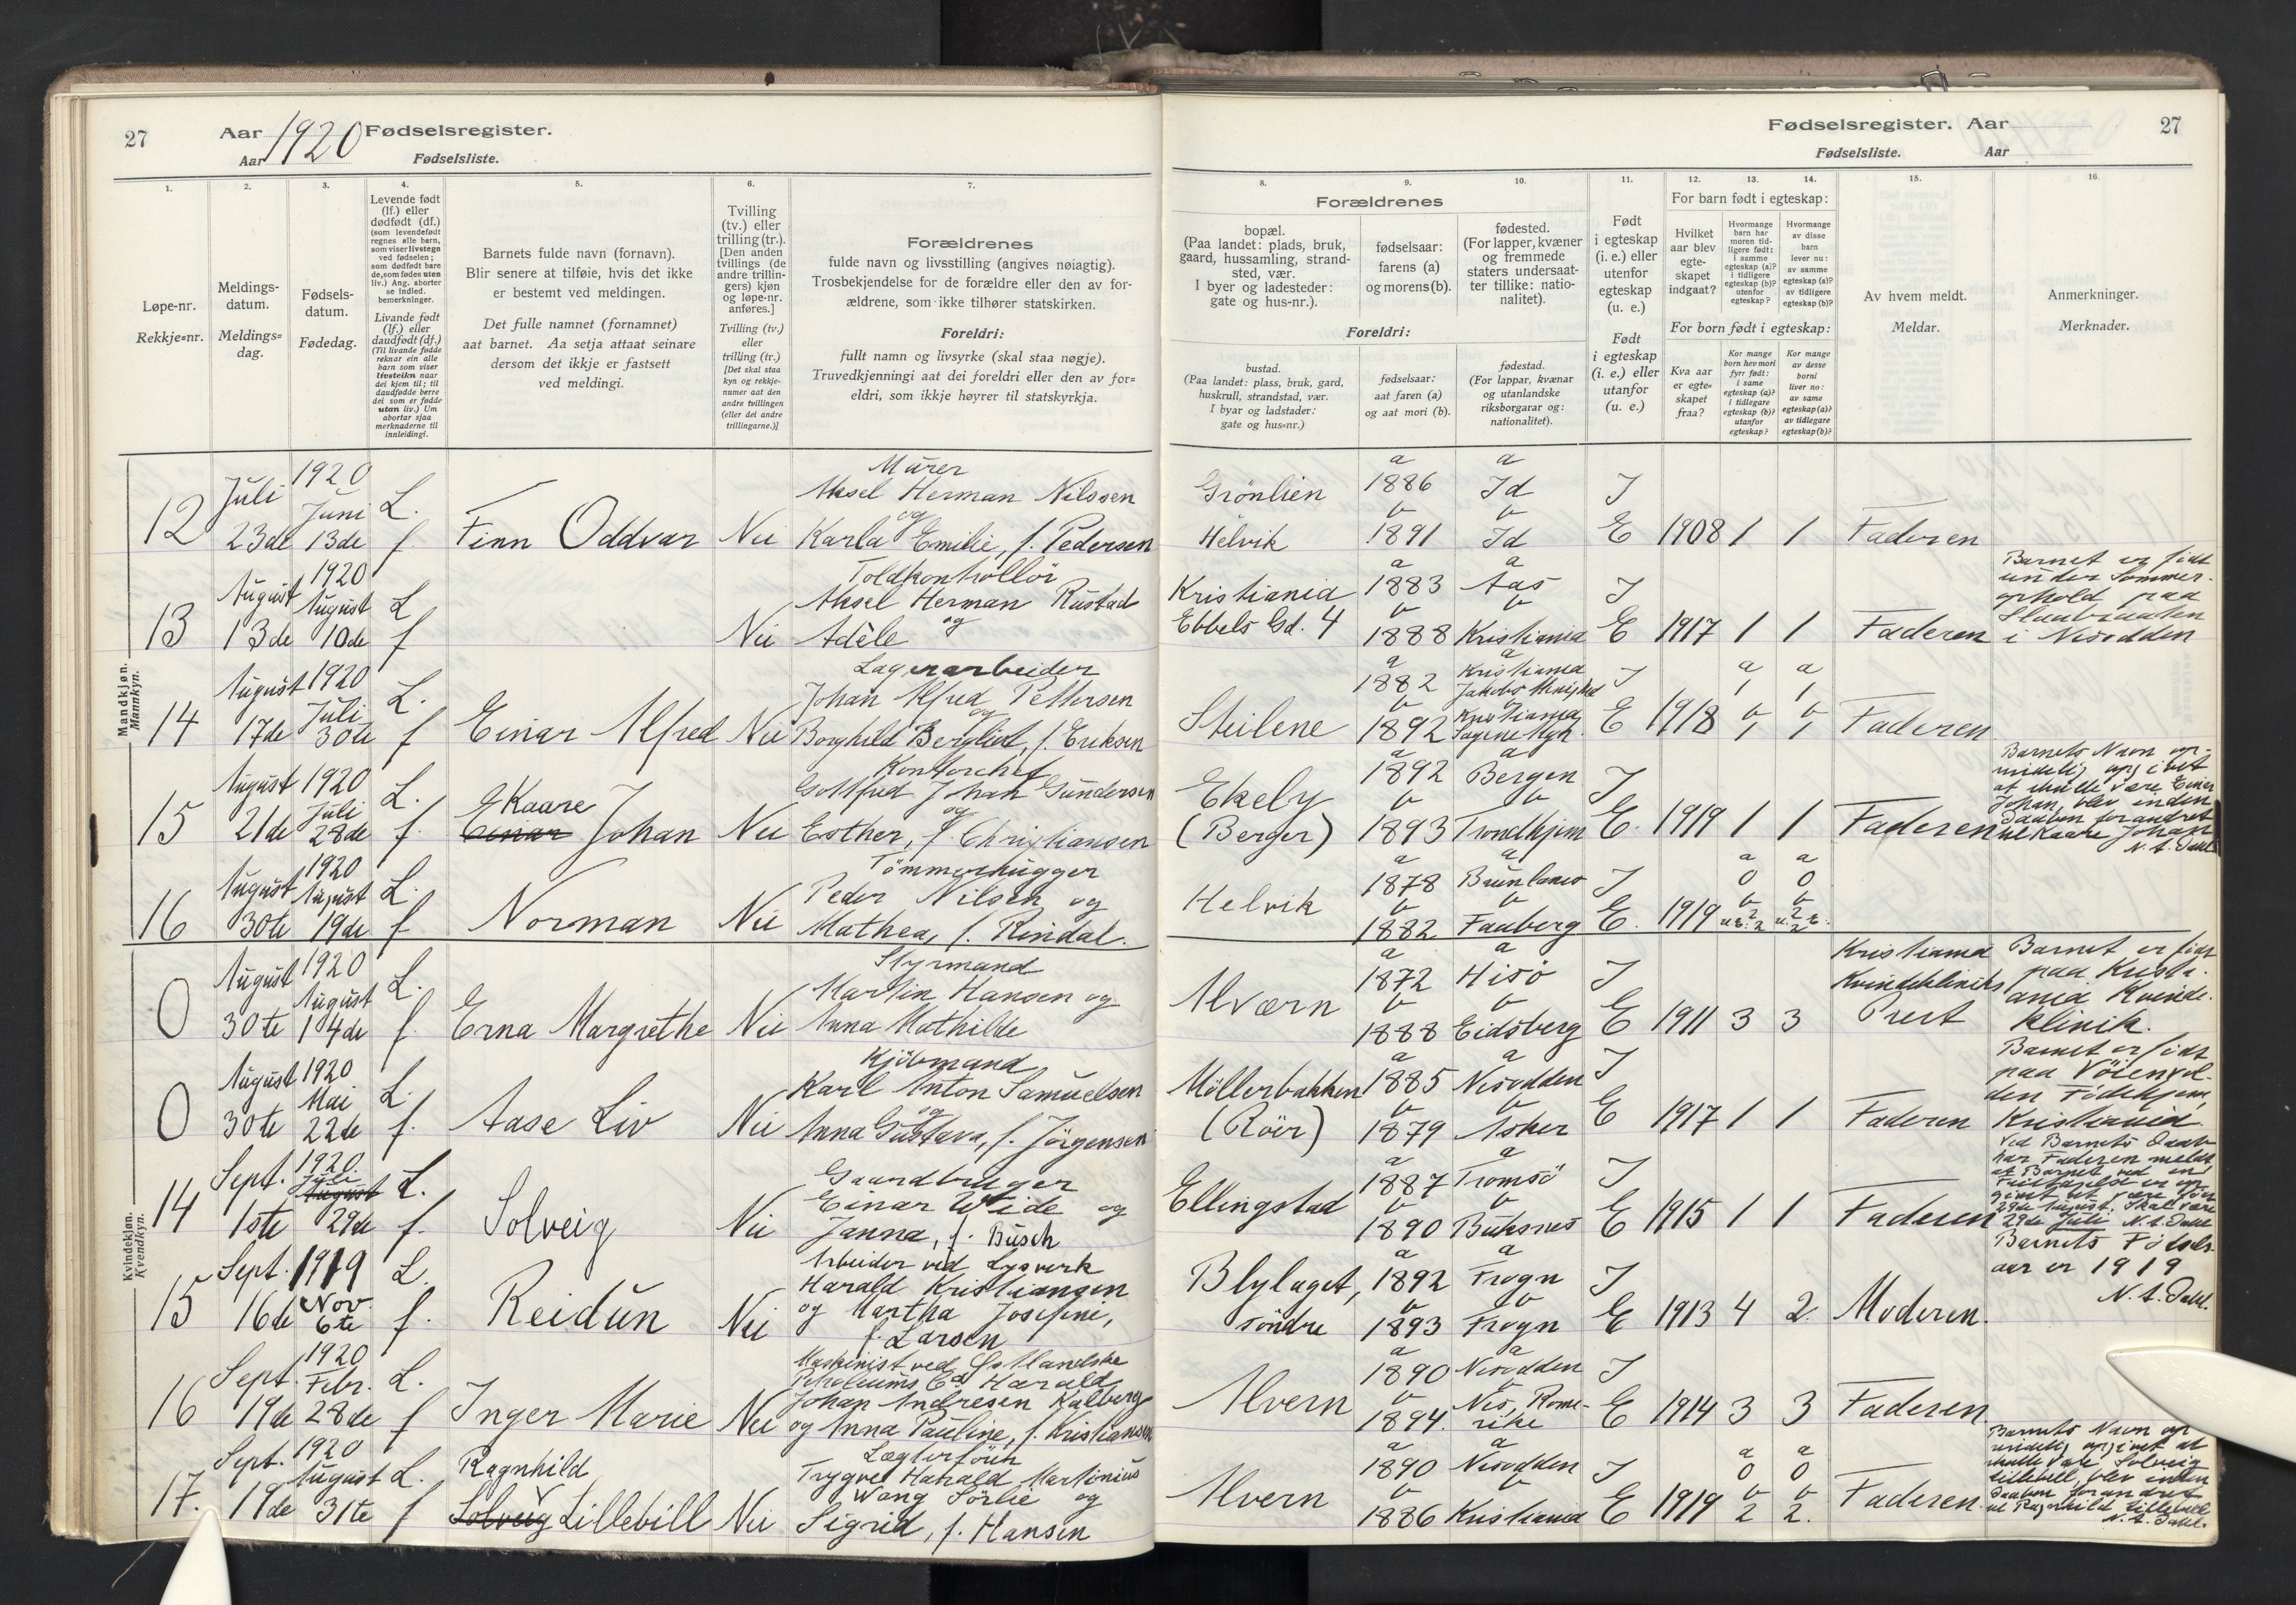 27
Aar 1920 Fødselsregister.
Aar Fødselsliste.
1. 2. 3. 4. 5. 6. 7.
Løpe-nr.
Rekkje=nr.
Meldings-
datum.
Meldings=
dag.
Fødsels-
datum.
Fødedag.
Levende født
(lf.) eller
dødfødt (df.)
(som levendefødt
regnes alle barn,
som viser livstegn
ved fødselen;
som dødfødt bare
de, som fødes uten
liv.) Ang. aborter
se indled.
bemerkninger.
Livande født
(lf.) eller
daudfødt (df.)
(Til livande fødde
reknar ein alle
barn som viser
livsteikn naar
dei kjem til; til
daudfødde berre
dei som er fødde
utan liv.) Um
abortar sjaa
merknaderne til
innleidingi.
Barnets fulde navn (fornavn).
Blir senere at tilføie, hvis det ikke
er bestemt ved meldingen.
Det fulle namnet (fornamnet)
aat barnet. Aa setja attaat seinare
dersom det ikkje er fastsett
ved meldingi.
Tvilling
(tv.) eller
trilling (tr.).
[Den anden
tvillings (de
andre trillin-
gers) kjøn
og løpe-nr.
anføres.]
Tvilling (tv.)
eller
trilling (tr.)
[Det skal staa
kyn og rekkje-
numer aat den
andre tvillingen
(eller dei andre
trillingarne.)]
Forældrenes
fulde navn og livsstilling (angives nøiagtig).
Trosbekjendelse for de forældre eller den av for-
ældrene, som ikke tilhører statskirken.
Foreldri:
fullt namn og livsyrke (skal staa nøgje).
Truvedkjenningi aat dei foreldri eller den av for=
eldri, som ikkje høyrer til statskyrkja.
Mandkjøn.
Mannkyn.
12 Juli 23de 1920 Juni 13de L. f. Finn Oddvar Nei
Murer
Aksel Herman Nilssen
og
Karla Emilie, f. Pedersen
13 August 13de 1920 August 10de L f Nei
Toldkontrollör
Aksel Herman Rustad
og
Adèle
14 August 17de 1920 Juli 30te L. f Einar Alfred Nei
Lagerarbeider
Johan Alfred Pettersen
og
Borghild Bergliot, f. Eriksen
15 August 21de 1920 Juli 28de L. f. Kaare
Einar Johan Nei
Kontorchef
Gottfred Johan Gundersen
og
Esther, f. Christiansen
16 August 30te 1920 August 19de L. f Norman Nei
Tömmerhugger
Peder Nilsen og
Mathea, f. Rindal.
0 August 30te 1920 August 14de L. f. Erna Margrethe Nei
Styrmand
Martin Hansen og
Anna Mathilde
0 August 30te 1920 Mai 22de L. f. Aase Liv Nei
Kjöbmand
Karl Anton Samuelsen
og
Anna Gustava, f. Jörgensen
Kvindekjøn.
Kvendkyn.
14 Sept. 1ste 1920. Juli August 29de L. f. Solveig Nei
Gaardbruger
Einar Wide og
Janna, f. Busch
15 Sept. 16de 1919 Nov. 6te L. f. Reidun Nei
Arbeider ved Lysverk
Harald Kristiansen
og Martha Josefine,
f. Larsen
16 Sept. 19de 1920 Febr. 28de L. f Inger Marie Nei
Maskinist ved Østlandske
Petroleums Co. Harald
Johan Andresen Kalberg
og Anna Pauline, f. Kristiansen
17. Sept. 19de 1920 August 31te L. f Ragnhild
Solveig Lillebill Nei
Lægterfører
Trygve Harald Martinius
Wang Sörlie og
Sigrid, f. Hansen
Fødselsregister. Aar 27
Fødselsliste. Aar
8. 9. 10. 11. 12. 13. 14. 15. 16.
Forældrenes
bopæl.
(Paa landet: plads, bruk,
gaard, hussamling, strand-
sted, vær.
I byer og ladesteder:
gate og hus-nr.).
fødselsaar:
farens (a)
og morens (b).
fødested.
(For lapper, kvæner
og fremmede
staters undersaat-
ter tillike: natio-
nalitet).
Foreldri:
bustad.
(Paa landet: plass, bruk, gard,
huskrull, strandstad, vær.
I byar og ladstader:
gate og hus=nr.)
fødselsaar:
aat faren (a)
og aat mori (b).
fødestad.
(For lappar, kvænar
og utanlandske
riksborgarar og:
nationalitet).
Født
i egteskap
(i. e.) eller
utenfor
egteskap
(u. e.)
Født
i egteskap
(i. e.) eller
utanfor
(u. e.)
For barn født i egteskap:
Hvilket
aar blev
egte-
skapet
indgaat?
Hvormange
barn har
moren tid-
ligere født:
i samme
egteskap (a)?
i tidligere
egteskap (b)?
utenfor
egteskap?
Hvormange
av disse
barn
lever nu:
av samme
egteskap (a)?
av tidligere
egteskap (b)?
For born født i egteskap:
Kva aar
er egte=
skapet
fraa?
Kor mange
born hev mori
fyrr født:
i same
egteskap (a)?
i tidlegare
egteskap (b)?
utanfor
egteskap?
Kor mange
av desse
borni
liver no:
av same
egteskap (a)?
av tidlegare
egteskap (b)?
Av hvem meldt.
Meldar.
Anmerkninger.
Merknader.
Grönlien
Helvik
a 1886 b 1891 a Id b Id I E 1908 1 1 Faderen
Kristiania
Ebbels Gd. 4
a 1883 b 1888 a Aas b Kristiania I E 1917 1 1 Faderen
Barnet er født
under Sommer-
ophold paa
i Nesodden
Steilene
a 1882 b 1892 a Kristiania Jakobs b Kristiania Sagene I E 1918 a 1 b 1 a 1 b 1 Faderen
Ekely
(Berger)
a 1892 b 1893 a Bergen b Trondhjem I E. 1919 1 1 Faderen
Barnets Navn op-
rindelig opgivet
at skulle være Einar
Johan, blev inden
Daaben forandret
til Kaare Johan
N. A. Dahl
Helvik
a 1878 b 1882 a Brunlanes b Faaberg I E. 1919 a 0 b a 0 b
Alværn
a 1872 b 1888 a Hisö b Eidsberg I E 1911 3 3
Kristiania
Kvindekliniks
Prest
Barnet er født
paa Kristi-
ania Kvinde-
klinik.
Möllerbakken
(Röir)
a 1885 b 1879 a Nesodden b Asker I E 1917 1 1 Faderen
Barnet er født
paa Vöienvol-
den Födehjem,
Kristiania.
Ellingstad
a 1887 b 1890 a Tromsö b Buksnes I E 1915 1 1 Faderen
Ved Barnets Daab
har Faderen meldt
at Barnet ved en
Feiltagelse er op-
givet at være född
29de August. Skal være
29de Juli N. A. Dahl
Blylaget,
söndre
a 1892 b 1893 a Frogn b Frogn I E 1913 4 2. Moderen.
Barnets Fødsels-
aar er 1919
N. A. Dahl.
Alvern
a 1890 b 1894. a Nesodden b Nes, Rome-
rike I E 1914 3 3 Faderen
Alvern
a 1890 b 1886 a Nesodden b Kristiania I E 1919 a 0 b 2 a 0 b 2. Faderen
Barnets Navn op-
rindelig opgivet at
skulle være Solveig
Lillebill, blev inden
Daaben forandret
til Ragnhild Lillebill
N. A. Dahl.